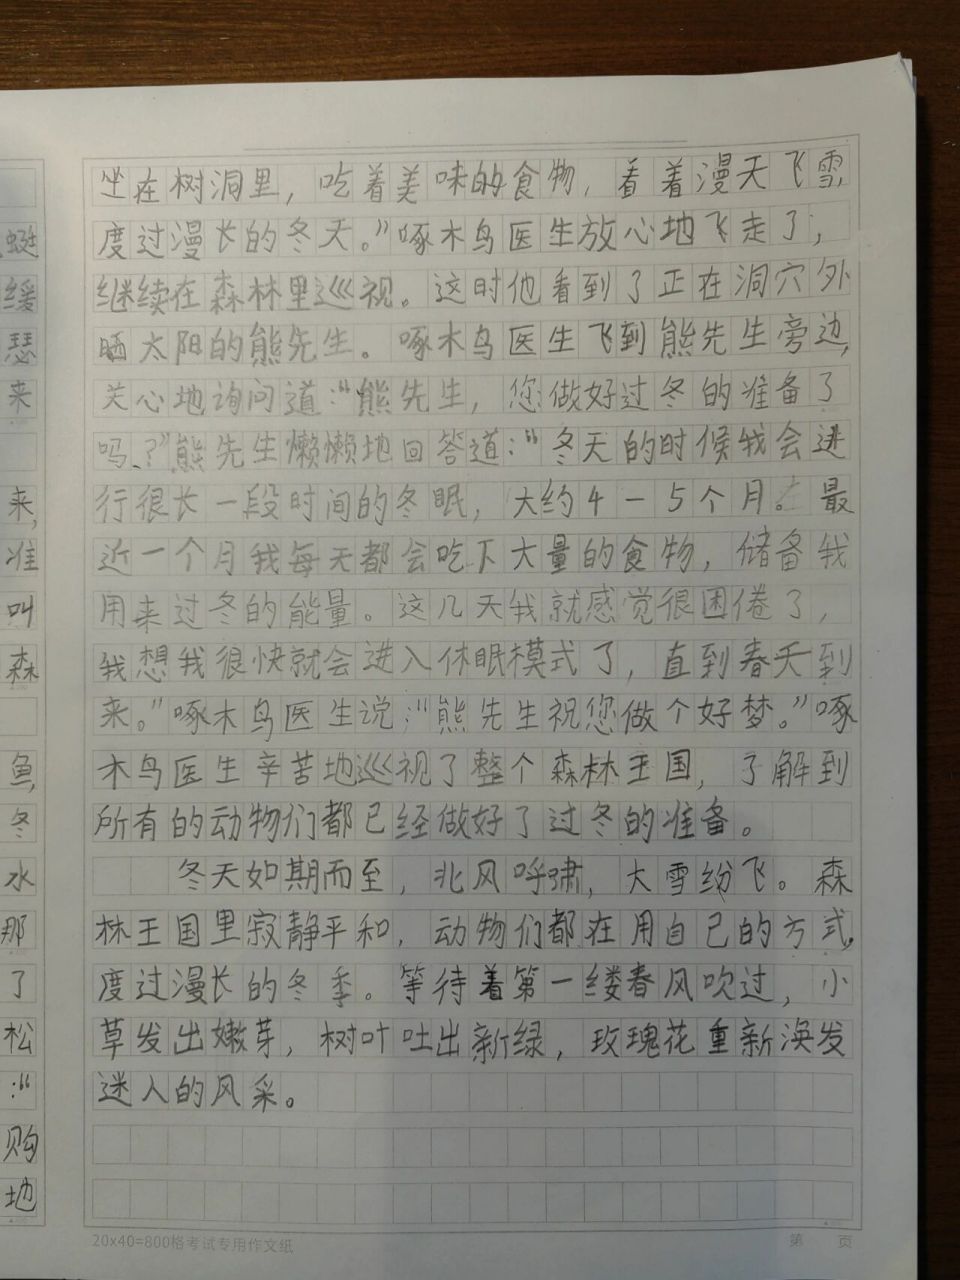 蜓
缓
瑟
来
来,
准
叫
森
鱼,
冬
水
那
了
松
:“
购
地
坐在树洞里，吃着美味的食物，看着漫天飞雪,
度过漫长的冬天。”啄木鸟医生放心地飞走了，
继续在森林里巡视。这时他看到了正在洞穴外
晒太阳的熊先生。啄木鸟医生飞到熊先生旁边,
关心地询问道：“熊先生，您做好过冬的准备了
吗？”熊先生懒懒地回答道：“冬天的时候我会进
行很长一段时间的冬眠，大约4一5个月。最
近一个月我每天都会吃下大量的食物，储备我
用来过冬的能量。这几天我就感觉很困倦了，
我想我很快就会进入休眠模式了，直到春天到
来。”啄木鸟医生说：“熊先生祝您做个好梦。”啄
木鸟医生辛苦地巡视了整个森林王国，了解到
所有的动物们都已经做好了过冬的准备。
冬天如期而至，北风呼啸，大雪纷飞。森
林王国里寂静平和，动物们都在用自己的方式,
度过漫长的冬季。等待着第一缕春风吹过，小
草发出嫩芽，树叶吐出新绿，玫瑰花重新涣发
迷人的风采。
20x40=800格考试专用作文纸 第 页